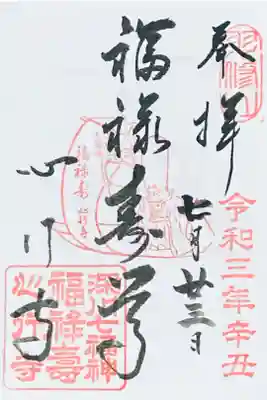 奉拝
令和三年辛丑
七月廿三日
福禄寿尊
心行寺
福禄寿 心行寺
深川七福神
福祿壽
心行寺